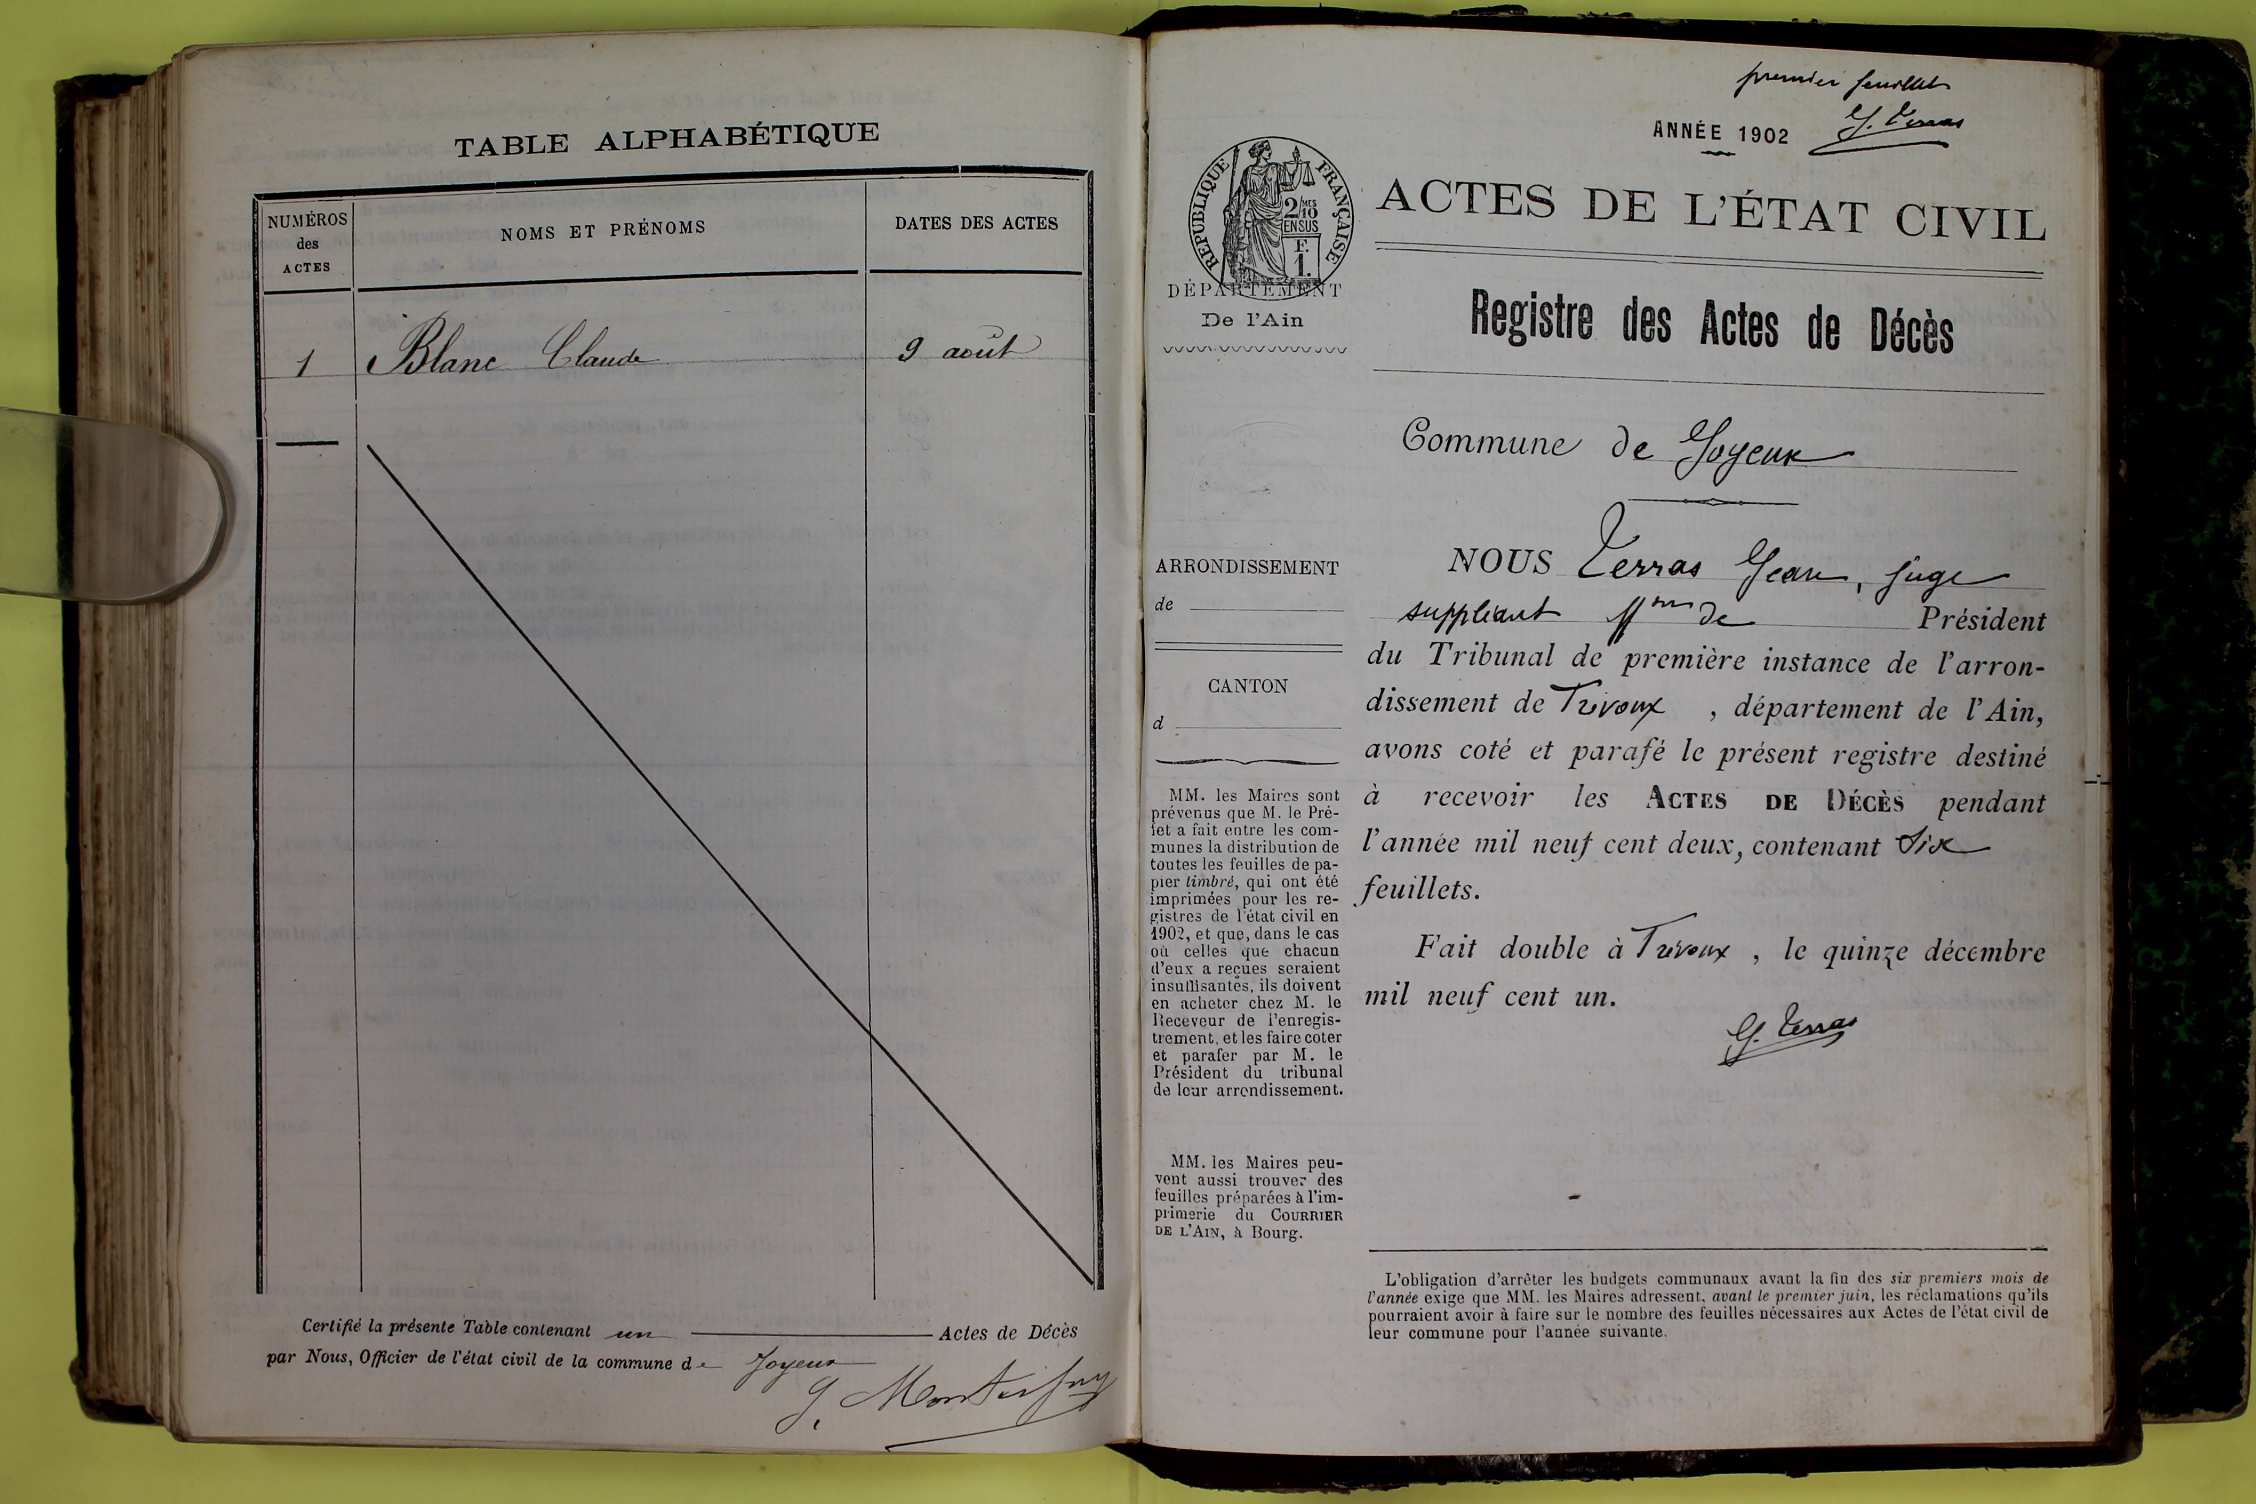 TABLE ALPHABÉTIQUE
NUMÉROS
des
ACTES
NOMS ET PRÉNOMS
DATES DES ACTES
1 Blanc Claude 9 août
Certifié la présente Table contenant un Actes de Décès
par Nous, Officier de l'état civil de la commune de Joyeux
premier feuillet
ANNÉE 1902
J. Terras
RÉPUBLIQUE FRANÇAISE
2/10 MES
EN SUS
F.
1.
DÉPARTEMENT
De l'Ain
ACTES DE L'ÉTAT CIVIL
Registre des Actes de Décès
Commune de Joyeux
ARRONDISSEMENT
de
CANTON
d
MM. les Maires sont
prévenus que M. le Pré-
fet a fait entre les com-
munes la distribution de
toutes les feuilles de pa-
pier timbré, qui ont été
imprimées pour les re-
gistres de l'état civil en
1902, et que, dans le cas
où celles que chacun
d'eux a reçues seraient
insuffisantes, ils doivent
en acheter chez M. le
Receveur de l'enregis-
trement, et les faire coter
et parafer par M. le
Président du tribunal
de leur arrondissement.
MM. les Maires peu-
vent aussi trouver des
feuilles préparées à l'im-
primerie du COURRIER
DE L'AIN, à Bourg.
NOUS Terras Jean, juge
suppléant ffons de Président
du Tribunal de première instance de l'arron-
dissement de Trévoux, département de l'Ain,
avons coté et parafé le présent registre destiné
à recevoir les ACTES DE DÉCÈS pendant
l'année mil neuf cent deux, contenant six
feuillets.
Fait double à Trévoux, le quinze décembre
mil neuf cent un.
J. Terras
L'obligation d'arrêter les budgets communaux avant la fin des six premiers mois de
l'année exige que MM. les Maires adressent, avant le premier juin, les réclamations qu'ils
pourraient avoir à faire sur le nombre des feuilles nécessaires aux Actes de l'état civil de
leur commune pour l'année suivante.